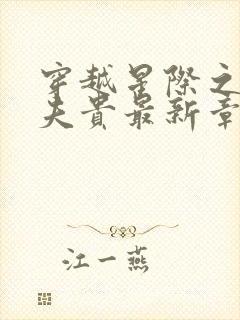 穿越星际之
夫贵最新章
江一燕